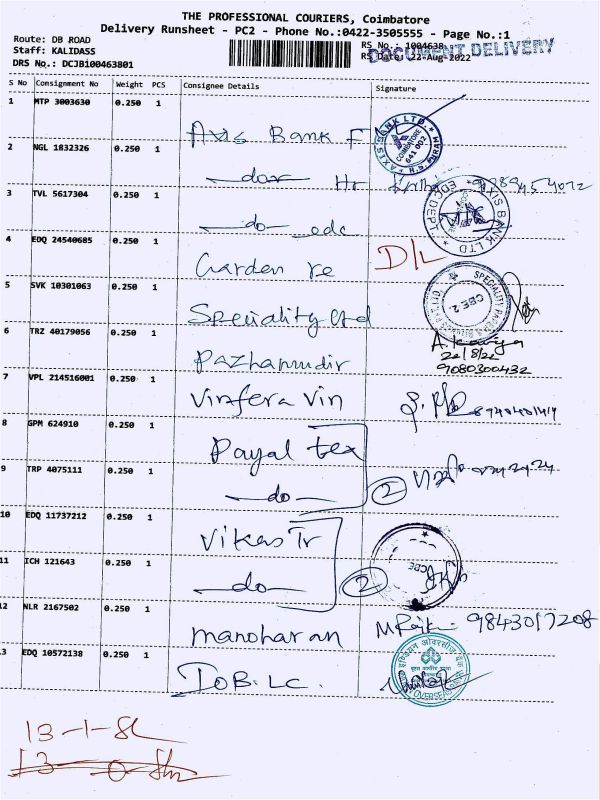 THE PROFESSIONAL COURIERS, Coimbatore
Delivery Runsheet - PC2 - Phone No.:0422-3505555 - Page No.:1
Route: DB ROAD
Staff: KALIDASS
DRS No.: DCJB100463801
RS No.: 1004638
RS Date: 22-Aug-2022
DOCUMENT DELIVERY
S No Consignment No Weight PCS Consignee Details Signature
1 MTP 3003630 0.250 1 Axis Bank F
AXIS BANK LTD. COIMBATORE 641 002
2 NGL 1832326 0.250 1 do Hr
3 TVL 5617304 0.250 1 do edc
AXIS BANK LTD EDC DEPT
4 EDQ 24540685 0.250 1 Garden re D/L
5 SVK 10301063 0.250 1 Speciality Ltd
CBE-2
6 TRZ 40179056 0.250 1 Pazhamudir
22/8/22
9080300432
7 VPL 214516001 0.250 1 Vinfera Vin
8 GPM 624910 0.250 1 Payal tex
9 TRP 4075111 0.250 1 do 2
10 EDQ 11737212 0.250 1 Vikas Tr
11 ICH 121643 0.250 1 do 2
CBE
12 NLR 2167502 0.250 1 manoharan 9843017208
13 EDQ 10572138 0.250 1 IOB.LC.
इण्डियन ओवरसीज़ बैंक
OVERSEAS
13-1-
13